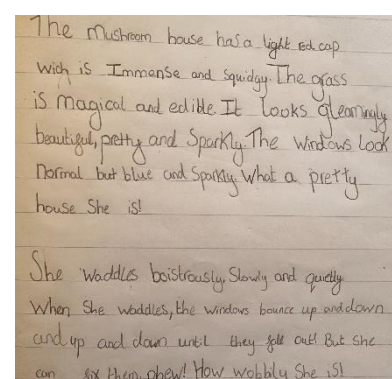 The mushroom house has a light red cap
wich is Immense and squidgy. The grass
is magical and edible. It looks gleamingly
beautiful, pretty and Sparkly. The windows look
normal but blue and Sparkly. What a pretty
house She is!
She waddles boistrously, Slowly and quietly
When She waddles, the windows bounce up and down
and up and down until they fall out! But She
can fix them, phew! How wobbly She is!